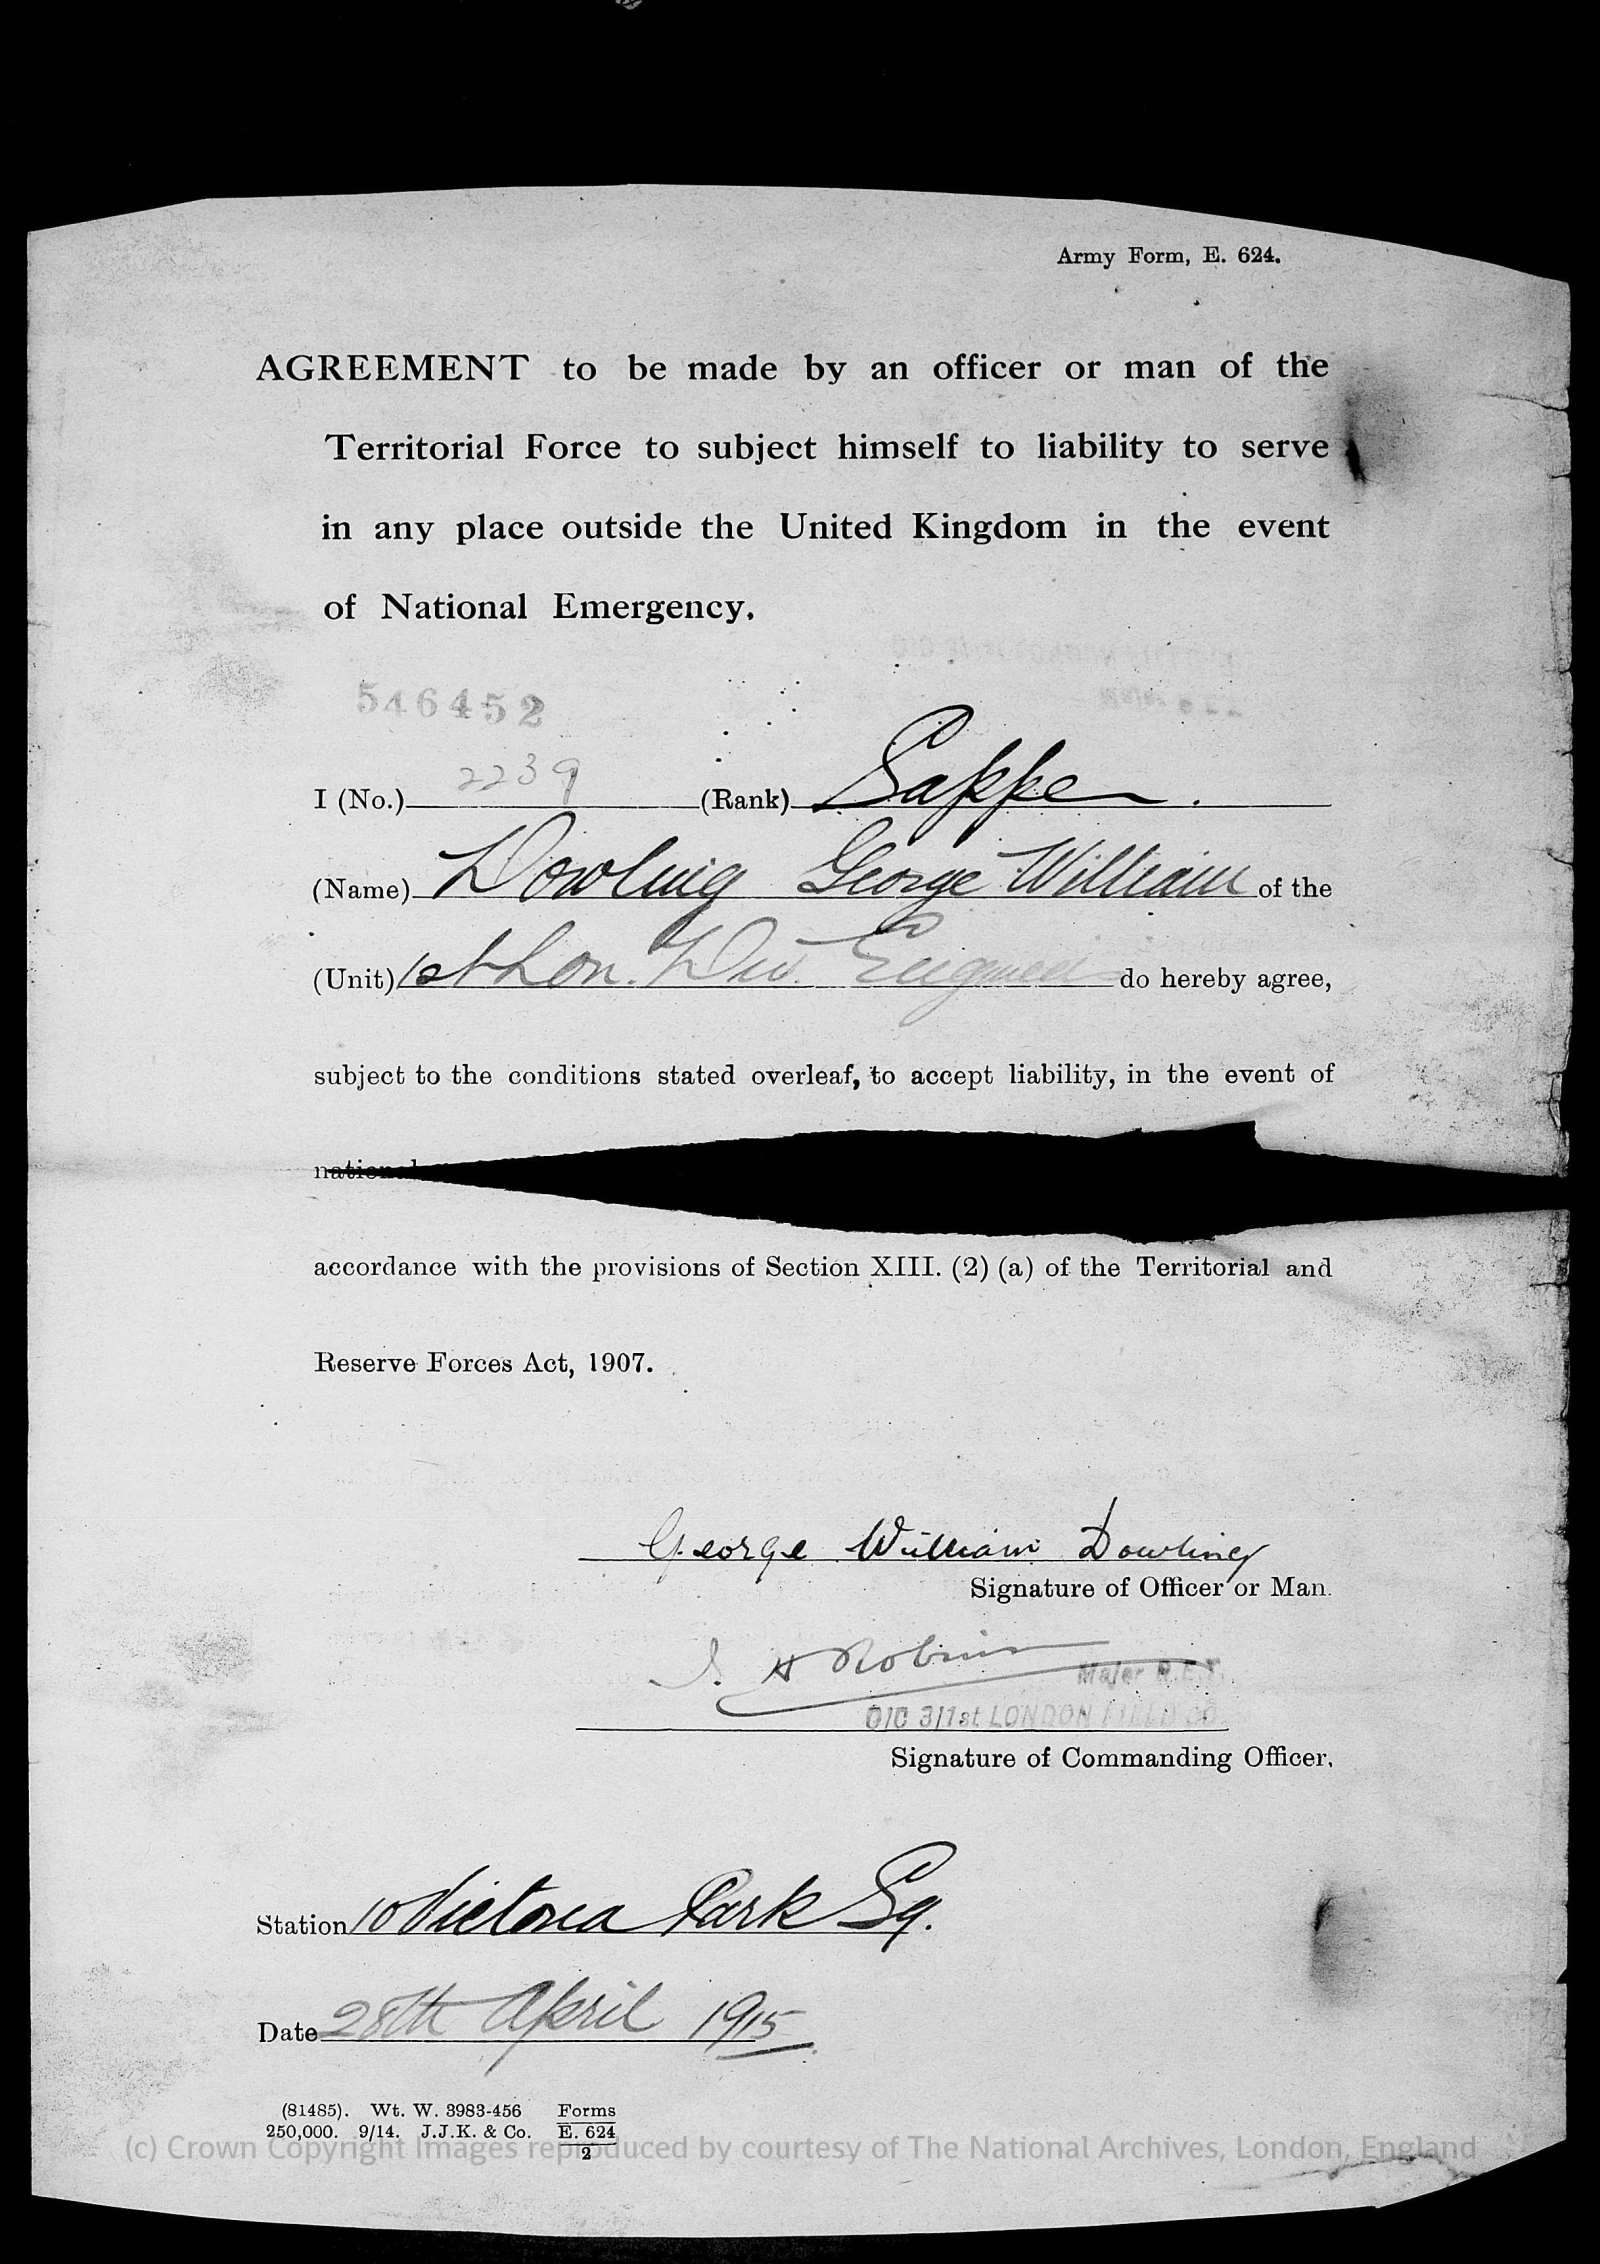 Army Form, E. 624.
AGREEMENT to be made by an officer or man of the
Territorial Force to subject himself to liability to serve
in any place outside the United Kingdom in the event
of National Emergency.
546452
I (No.) 2239 (Rank) Sapper.
(Name) Dowling George William of the
(Unit) 1st Lon. Div. Engineers do hereby agree,
subject to the conditions stated overleaf, to accept liability, in the event of
national
accordance with the provisions of Section XIII. (2) (a) of the Territorial and
Reserve Forces Act, 1907.
George William Dowling
Signature of Officer or Man.
H Robinson
Major R.E.T.
O/C 3/1st LONDON FIELD CO.
Signature of Commanding Officer.
Station 10 Victoria Park Sq.
Date 28th April 1915
(81485). Wt. W. 3983-456 Forms
250,000. 9/14. J.J.K. & Co. E. 624
2
(c) Crown Copyright Images reproduced by courtesy of The National Archives, London, England